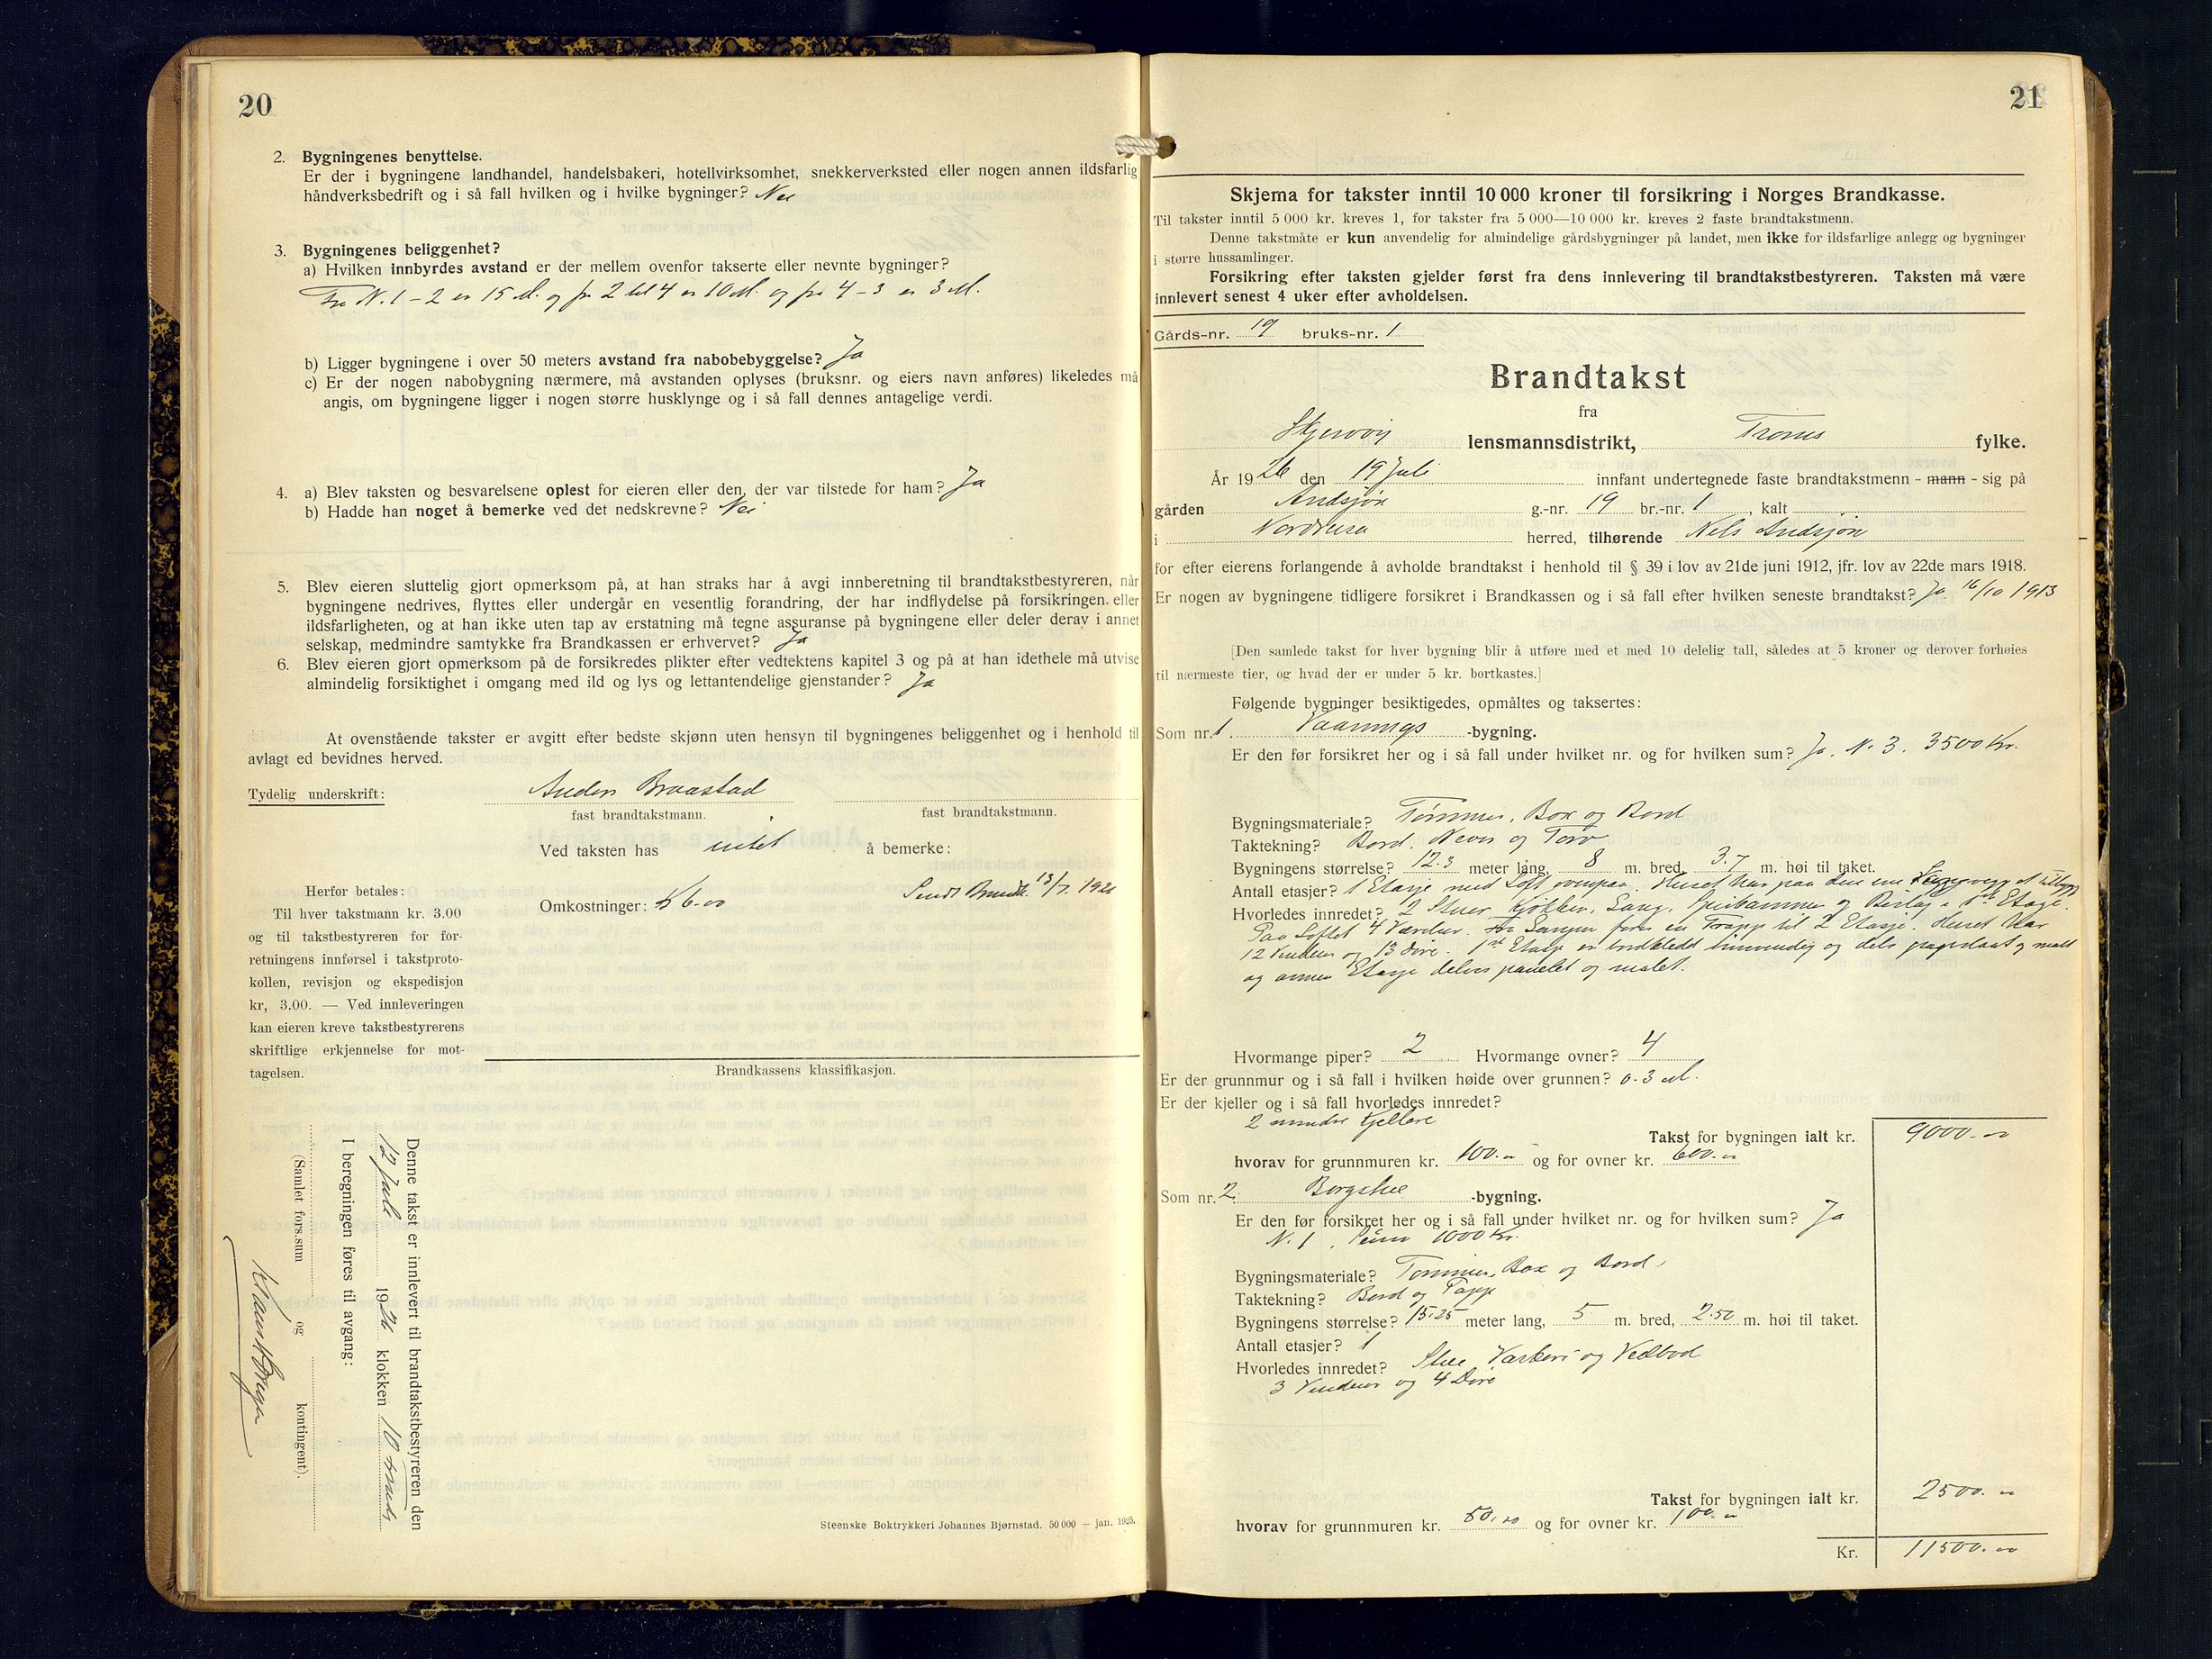 20
2. Bygningenes benyttelse.
Er der i bygningene landhandel, handelsbakeri, hotellvirksomhet, snekkerverksted eller nogen annen ildsfarlig
håndverksbedrift og i så fall hvilken og i hvilke bygninger? Nei
3. Bygningenes beliggenhet?
a) Hvilken innbyrdes avstand er der mellem ovenfor takserte eller nevnte bygninger?
Fra N. 1 - 2 er 15 M. og fra 2 til 4 er 10 M. og fra 4 - 3 er 3 M.
b) Ligger bygningene i over 50 meters avstand fra nabobebyggelse? Ja
c) Er der nogen nabobygning nærmere, må avstanden oplyses (bruksnr. og eiers navn anføres) likeledes må
angis, om bygningene ligger i nogen større husklynge og i så fall dennes antagelige verdi.
4. a) Blev taksten og besvarelsene oplest for eieren eller den, der var tilstede for ham? Ja
b) Hadde han noget å bemerke ved det nedskrevne? Nei
5. Blev eieren sluttelig gjort opmerksom på, at han straks har å avgi innberetning til brandtakstbestyreren, når
bygningene nedrives, flyttes eller undergår en vesentlig forandring, der har indflydelse på forsikringen eller
ildsfarligheten, og at han ikke uten tap av erstatning må tegne assuranse på bygningene eller deler derav i annet
selskap, medmindre samtykke fra Brandkassen er erhvervet? Ja
6. Blev eieren gjort opmerksom på de forsikredes plikter efter vedtektens kapitel 3 og på at han idethele må utvise
almindelig forsiktighet i omgang med ild og lys og lettantendelige gjenstander? Ja
At ovenstående takster er avgitt efter bedste skjønn uten hensyn til bygningenes beliggenhet og i henhold til
avlagt ed bevidnes herved.
Tydelig underskrift:
Anders Braastad
fast brandtakstmann.
fast brandtakstmann.
Ved taksten has intet å bemerke:
Omkostninger: kr 6.00
Sendt Brandk. 13/7. 1926
Herfor betales:
Til hver takstmann kr. 3.00
og til takstbestyreren for for-
retningens innførsel i takstproto-
kollen, revisjon og ekspedisjon
kr, 3.00. — Ved innleveringen
kan eieren kreve takstbestyrerens
skriftlige erkjennelse for mot-
tagelsen.
Brandkassens klassifikasjon.
Denne takst er innlevert til brandtakstbestyreren den
12 Juli 1926 klokken 10
I beregningen føres til avgang:
(Samlet fors.sum og kontingent).
Steenske Boktrykkeri Johannes Bjørnstad. 50 000 — jan. 1925.
21
Skjema for takster inntil 10 000 kroner til forsikring i Norges Brandkasse.
Til takster inntil 5 000 kr. kreves 1, for takster fra 5 000—10 000 kr. kreves 2 faste brandtakstmenn.
Denne takstmåte er kun anvendelig for almindelige gårdsbygninger på landet, men ikke for ildsfarlige anlegg og bygninger
i større hussamlinger.
Forsikring efter taksten gjelder først fra dens innlevering til brandtakstbestyreren. Taksten må være
innlevert senest 4 uker efter avholdelsen.
Gårds-nr. 19 bruks-nr. 1
Brandtakst
fra
Skjervøy lensmannsdistrikt, Troms fylke.
År 1926 den 19 Juli innfant undertegnede faste brandtakstmenn - mann - sig på
gården Andsjøn g.-nr. 19 br.-nr. 1, kalt
i Nordreisa herred, tilhørende Nels Andsjøn
for efter eierens forlangende å avholde brandtakst i henhold til § 39 i lov av 21de juni 1912, jfr. lov av 22de mars 1918.
Er nogen av bygningene tidligere forsikret i Brandkassen og i så fall efter hvilken seneste brandtakst? Ja. 16/10 1913
[Den samlede takst for hver bygning blir å utføre med et med 10 delelig tall, således at 5 kroner og derover forhøies
til nærmeste tier, og hvad der er under 5 kr. bortkastes.]
Følgende bygninger besiktigedes, opmåltes og taksertes:
Som nr. 1 Vaanings -bygning.
Er den før forsikret her og i så fall under hvilket nr. og for hvilken sum? Ja. N. 3. 3500 Kr.
Bygningsmateriale? Tømmer, Box og Bord
Taktekning? Bord, Never og Torv
Bygningens størrelse? 12.3 meter lang, 8 m. bred, 3.7 m. høi til taket.
Antall etasjer? 1 Etasje med Loft ovenpaa. Huset har paa den ene Langvegg et tilbygg
Hvorledes innredet? 2 Stuer, Kjøkken, Gang, Spiskammer og Bislag i 1st Etage.
Paa Loftet 4 Værelser. Fra Gangen fører en Trapp til 2 Etasje. Huset har
12 Vinduer og 13 Døre. 1st Etasje er bordkledd innvendig og dels og malt
og annen Etasje delvis panelet og malet.
Hvormange piper? 2 Hvormange ovner? 4
Er der grunnmur og i så fall i hvilken høide over grunnen? 0.3 M.
Er der kjeller og i så fall hvorledes innredet?
2 mindre Kjellere
Takst for bygningen ialt kr. 9000.00
hvorav for grunnmuren kr. 100.00 og for ovner kr. 600.00
Som nr. 2. Borgstue -bygning.
Er den før forsikret her og i så fall under hvilket nr. og for hvilken sum? Ja
N. 1, 1000 Kr.
Bygningsmateriale? Tømmer, Box og Bord
Taktekning? Bord og Papp
Bygningens størrelse? 15.25 meter lang, 5 m. bred, 2.50 m. høi til taket.
Antall etasjer? 1
Hvorledes innredet? Stue, Vaskeri og Vedbod
3 Vinduer og 4 Døre
Takst for bygningen ialt kr. 2500.00
hvorav for grunnmuren kr. 50.00 og for ovner kr. 100.00
Kr. 11500.00